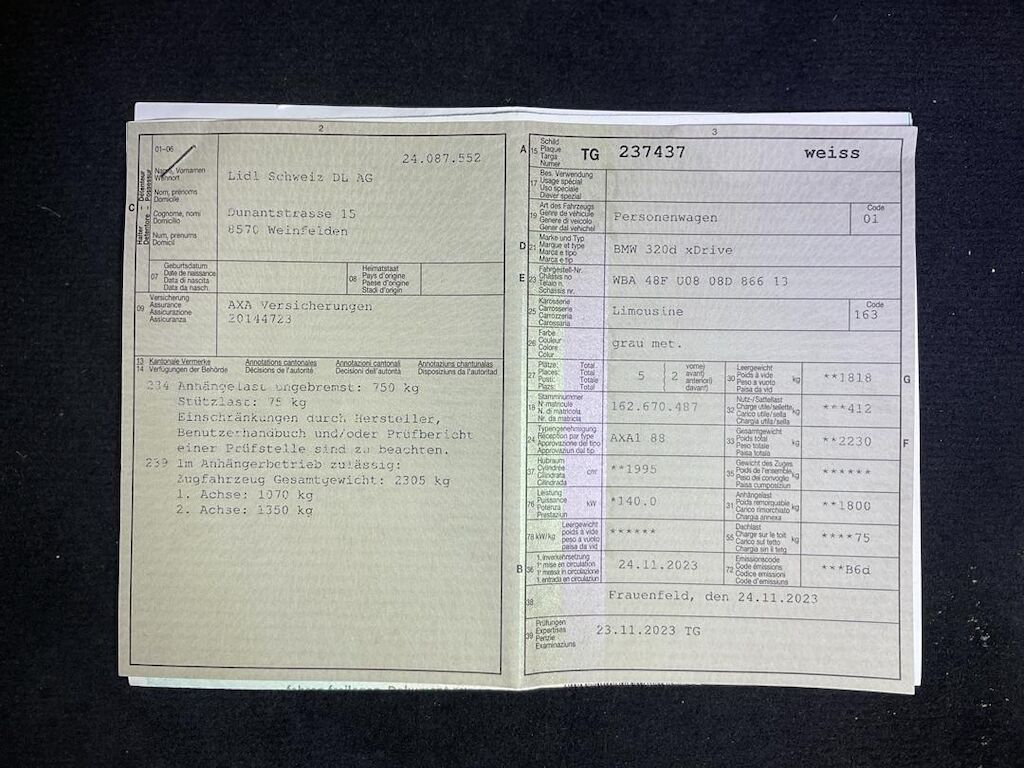 2
01-06
24.087.552
Name, Vornamen
Wohnort
Nom, prénoms
Domicile
Cognome, nomi
Domicilio
Num, prenums
Domicil
C
Halter - Détenteur
Detentore - Possessur
Lidl Schweiz DL AG
Dunantstrasse 15
8570 Weinfelden
07
Geburtsdatum
Date de naissance
Data di nascita
Data da nasch.
08
Heimatstaat
Pays d'origine
Paese d'origine
Stadi d'origin
09
Versicherung
Assurance
Assicurazione
Assicuranza
AXA Versicherungen
20144723
13 Kantonale Vermerke Annotations cantonales Annotazioni cantonali Annotaziuns chantunalas
14 Verfügungen der Behörde Décisions de l'autorité Decisioni dell'autorità Disposiziuns da l'autoritad
234 Anhängelast ungebremst: 750 kg
Stützlast: 75 kg
Einschränkungen durch Hersteller,
Benutzerhandbuch und/oder Prüfbericht
einer Prüfstelle sind zu beachten.
239 Im Anhängerbetrieb zulässig:
Zugfahrzeug Gesamtgewicht: 2305 kg
1. Achse: 1070 kg
2. Achse: 1350 kg
3
A 15
Schild
Plaque
Targa
Numer
TG 237437 weiss
17
Bes. Verwendung
Usage spécial
Uso speciale
Diever spezial
19
Art des Fahrzeugs
Genre de véhicule
Genere di veicolo
Gener dal vehichel
Personenwagen
Code
01
D 21
Marke und Typ
Marque et type
Marca e tipo
Marca e tip
BMW 320d xDrive
E 23
Fahrgestell-Nr.
Châssis no
Telaio n.
Schassis nr.
WBA 48F U08 08D 866 13
25
Karosserie
Carrosserie
Carrozzeria
Carossaria
Limousine
Code
163
26
Farbe
Couleur
Colore
Colur
grau met.
27
Plätze: Total
Places: Total
Posti: Totale
Plazs: Total
5 2
vorne)
avant)
anteriori)
davant)
30
Leergewicht
Poids à vide
Peso a vuoto
Paisa da vid
kg
**1818
G
18
Stammnummer
N° matricule
N. di matricola
Nr. da matricla
162.670.487
32
Nutz-/Sattellast
Charge utile/sellette
Carico utile/sella
Chargia utila/sella
kg
***412
24
Typengenehmigung
Réception par type
Approvazione del tipo
Approvaziun dal tip
AXA1 88
33
Gesamtgewicht
Poids total
Peso totale
Paisa totala
kg
**2230
F
37
Hubraum
Cylindrée
Cilindrata
Cilindrada
cm³
**1995
35
Gewicht des Zuges
Poids de l'ensemble
Peso del convoglio
Paisa cumposiziun
kg
******
76
Leistung
Puissance
Potenza
Prestaziun
kW
*140.0
31
Anhängelast
Poids remorquable
Carico rimorchiato
Chargia annexa
kg
**1800
78 kW/kg
Leergewicht
poids à vide
peso a vuoto
paisa da vid
******
55
Dachlast
Charge sur le toit
Carico sul tetto
Chargia sin il tetg
kg
****75
B 36
1. Inverkehrsetzung
1re mise en circulation
1a messa in circolazione
1. entrada en circulaziun
24.11.2023
72
Emissionscode
Code émissions
Codice emissioni
Code d'emissiuns
***B6d
38
Frauenfeld, den 24.11.2023
39
Prüfungen
Expertises
Perizie
Examinaziuns
23.11.2023 TG